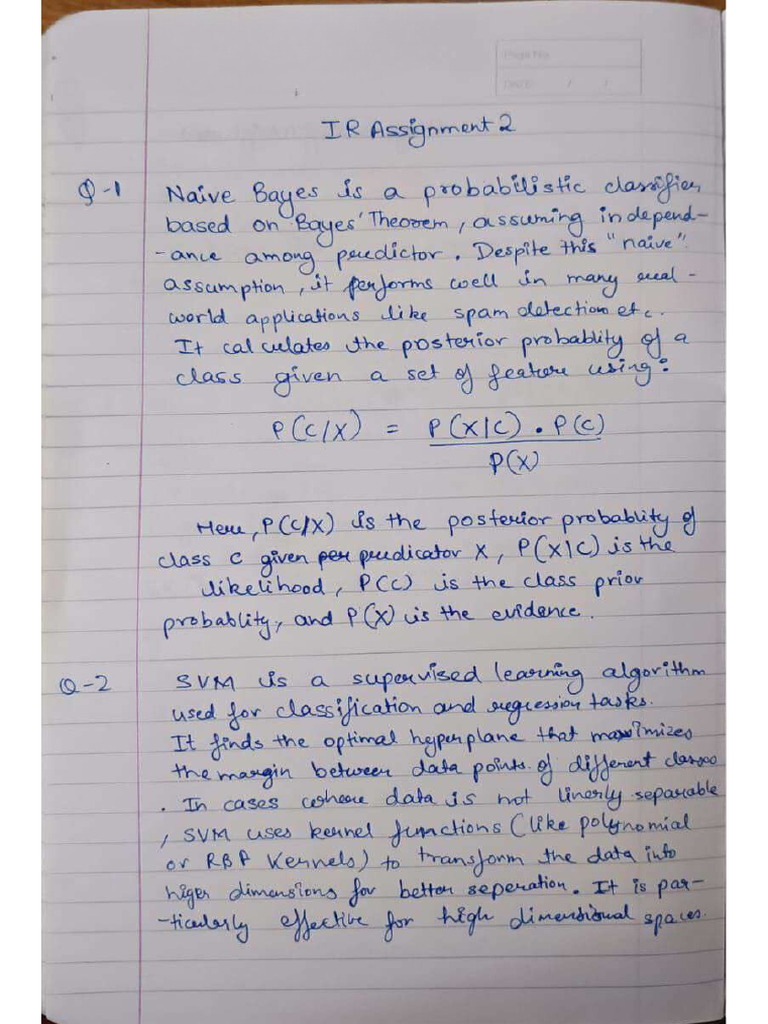 IR Assignment 2
Q-1 Naive Bayes is a probabilistic classifier,
based on Bayes' Theorem, assuming independ-
-ance among predictor. Despite this "naive"
assumption, it performs well in many real-
world applications like spam detection etc.
It calculates the posterior probablity of a
class given a set of feature using:
P(C/X) = P(X|C) . P(C)
P(X)
Here, P(C/X) is the posterior probablity of
class C given predicator X, P(X|C) is the
likelihood, P(C) is the class prior
probablity, and P(X) is the evidence.
Q-2 SVM is a supervised learning algorithm
used for classification and regression tasks.
It finds the optimal hyperplane that maximizes
the margin between data points of different classes
. In cases where data is not linerly separable
, SVM uses kernel functions (like polynomial
or RBF Kernels) to transform the data into
higer dimensions for better seperation. It is par-
-ticularly effective for high dimensional spaces.